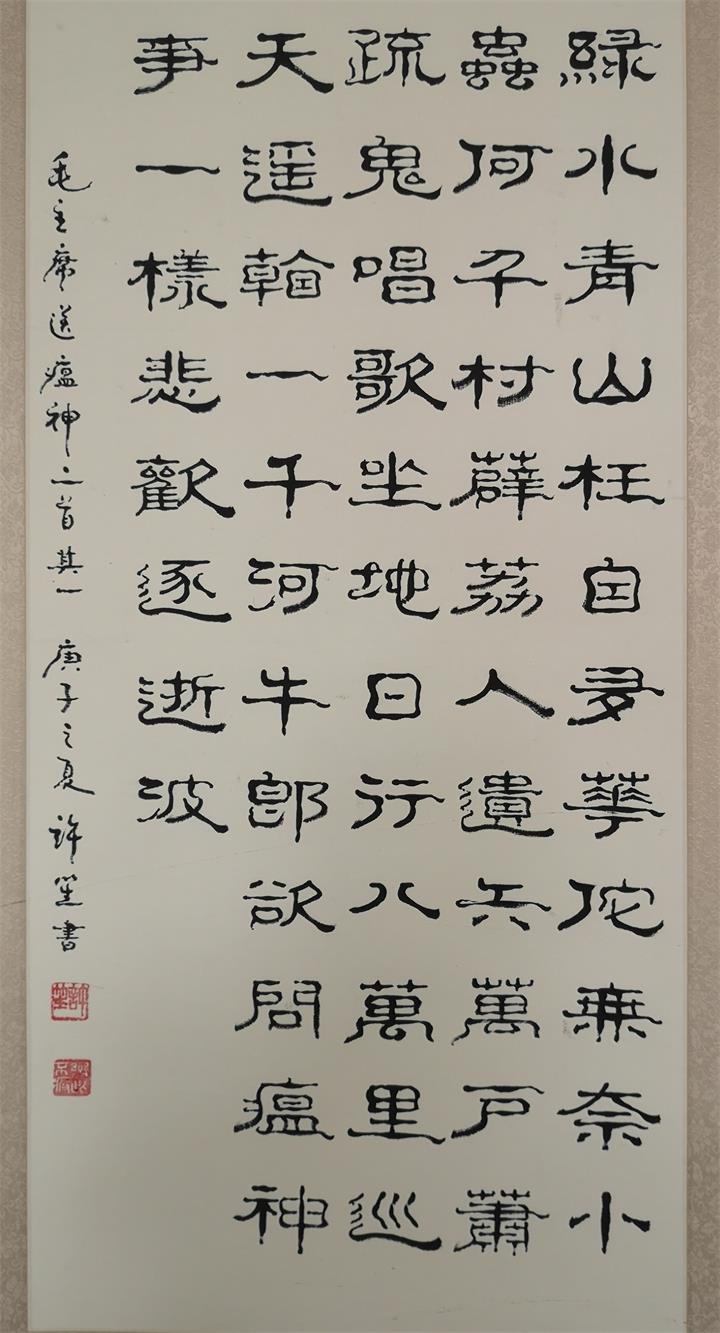 綠水青山枉自多華佗無奈小
蟲何千村薜荔人遺矢萬戶蕭
疏鬼唱歌坐地日行八萬里巡
天遥看一千河牛郎欲問瘟神
事一樣悲歡逐逝波
毛主席送瘟神二首其一 庚子之夏 許書